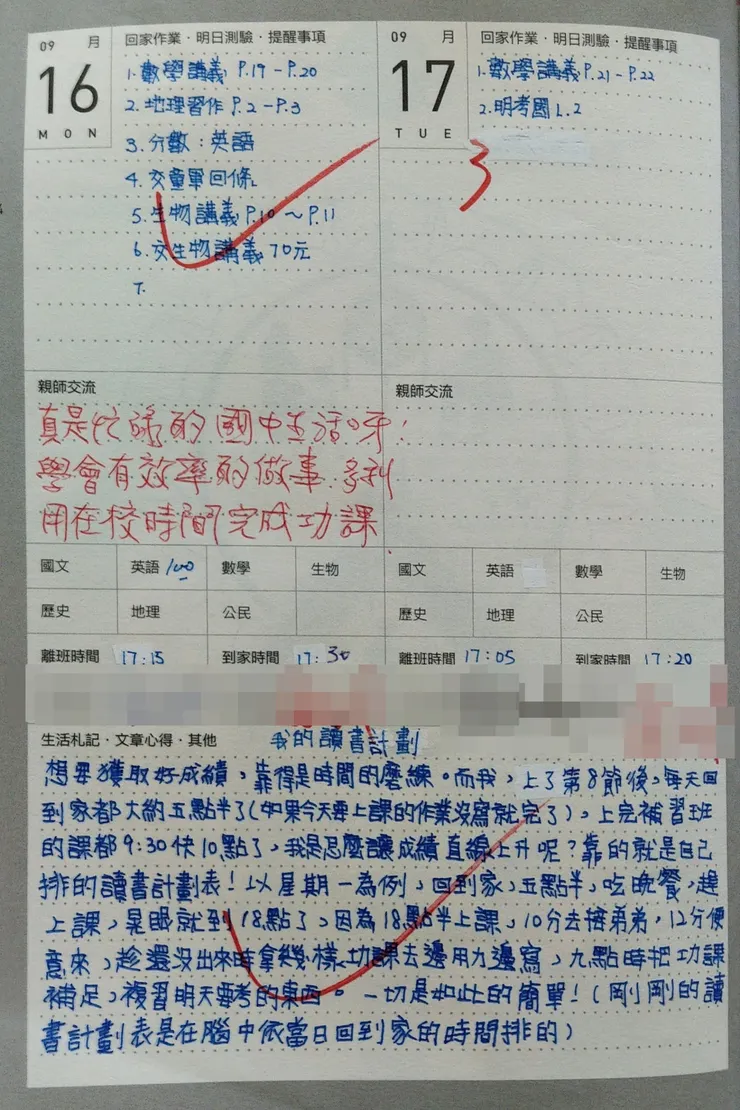 09 月 回家作業·明日測驗·提醒事項
16
MON
1. 數學講義 P.19-P.20
2. 地理習作 P.2-P.3
3. 分數：英語
4. 交童軍回條
5. 生物講義 P.10～P.11
6. 交生物講義 70元
7.
09 月 回家作業·明日測驗·提醒事項
17
TUE
1. 數學講義 P.21-P.22
2. 明考國 L.2
3
親師交流
真是忙碌的國中生活呀!
學會有效率的做事,多利
用在校時間完成功課
親師交流
國文 英語 100 數學 生物
歷史 地理 公民
離班時間 17:15 到家時間 17:30
國文 英語 數學 生物
歷史 地理 公民
離班時間 17:05 到家時間 17:20
生活札記·文章心得·其他 我的讀書計劃
想要獲取好成績，靠得是時間的磨練。而我，上了第8節後，每天回
到家都大約五點半了(如果今天要上課的作業沒寫就完了)，上完補習班
的課都9:30快10點了，我是怎麼讓成績直線上升呢？靠的就是自己
排的讀書計劃表！以星期一為例，回到家，五點半，吃晚餐，趕
上課，晃眼就到18點了，因為18點半上課，10分去接弟弟，12分便
意來，趁還沒出來時拿幾樣功課去邊用力邊寫，九點時把功課
補足，複習明天要考的東西。一切是如此的簡單！(剛剛的讀
書計劃表是在腦中依當日回到家的時間排的)